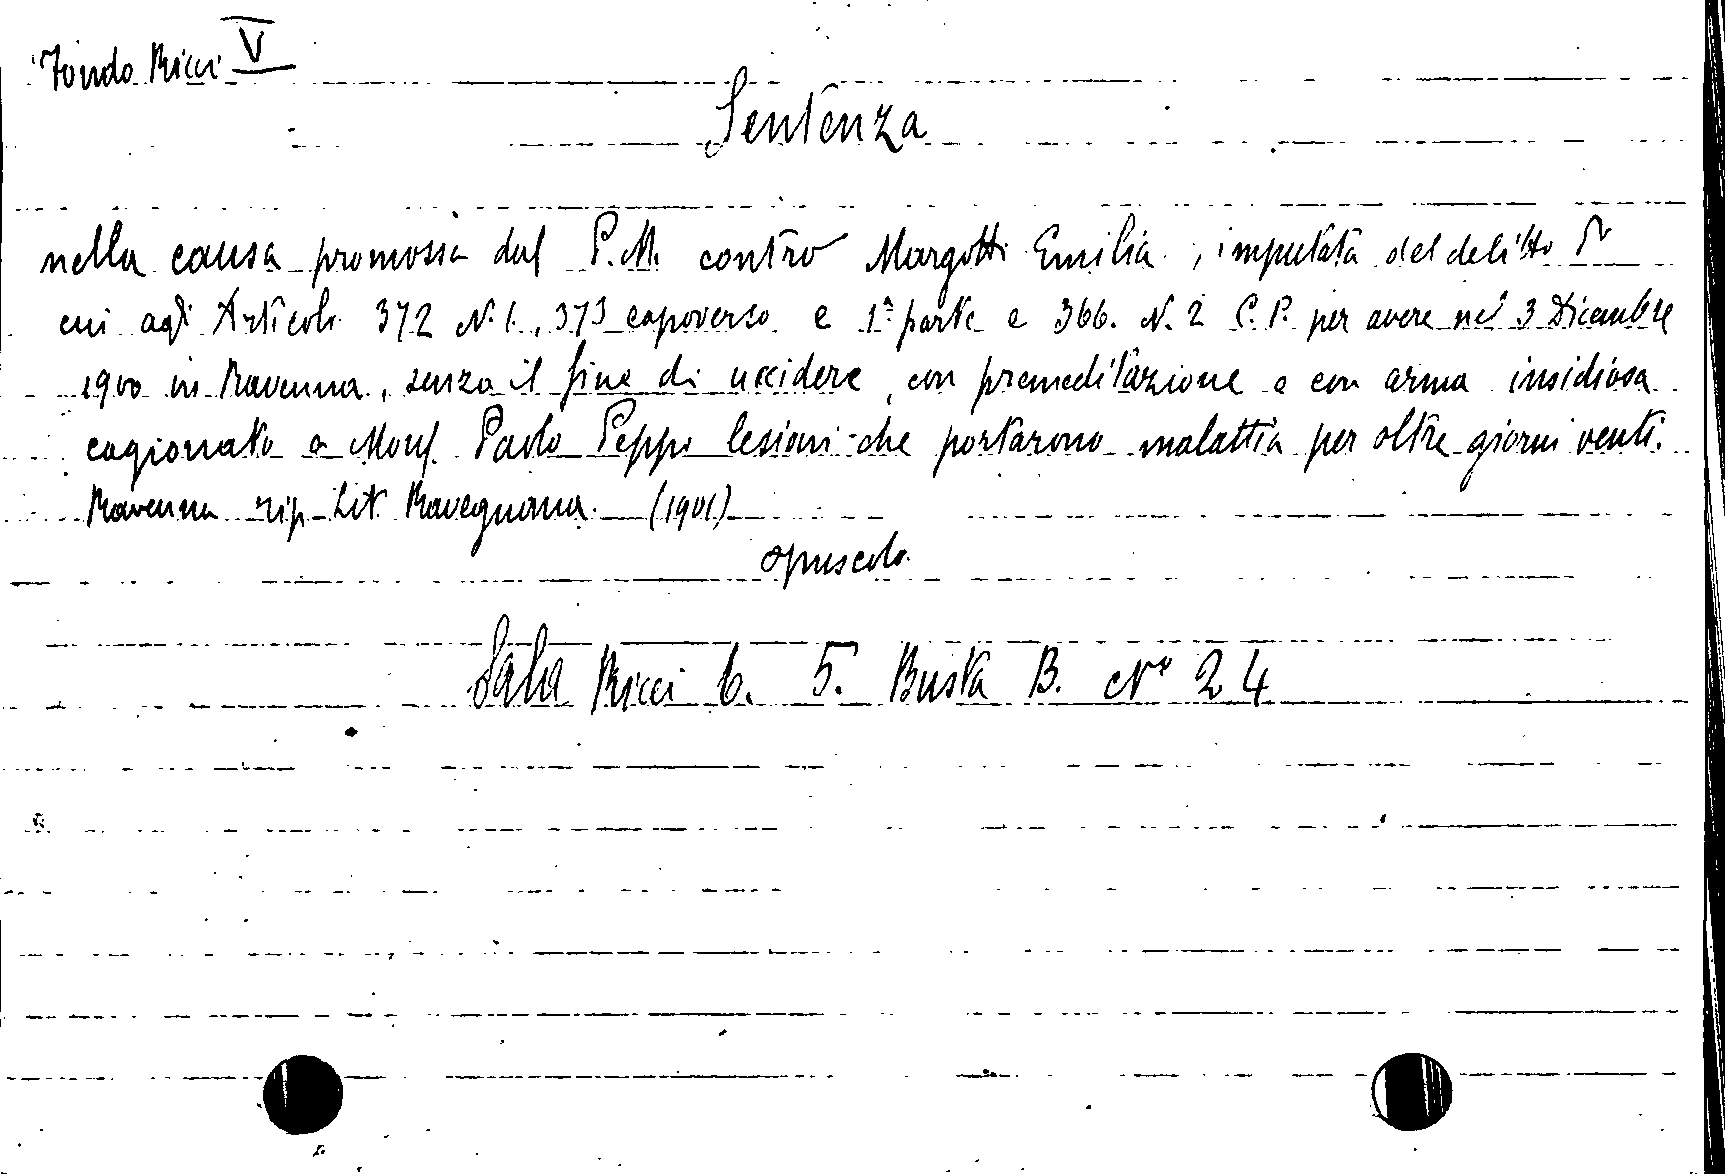 Fondo Ricci V
Sentenza
nella causa promossa dal P.M. contro Margotti Emilia, imputata del delitto di
cui agli Articoli 372 N. 1., 373 capoverso e 1ª parte e 366. N. 2 C. P. per avere nel 3 Dicembre
1900 in Ravenna, senza il fine di uccidere, con premeditazione e con arma insidiosa
cagionato a Mons. Paolo Peppi lesioni che portarono malattia per oltre giorni venti.
Ravenna Tip. Lit. Ravegnana. (1901)
opuscolo.
Sala Ricci 6. 5. Busta B. Nº 24